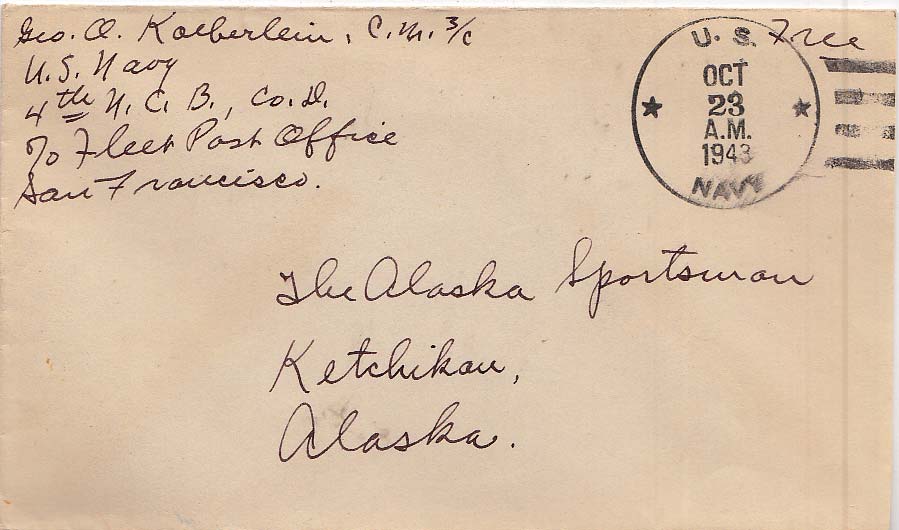 Geo. O. Koeberlein, C.M. 3/c
U.S. Navy
4th N.C.B., Co. D.
c/o Fleet Post Office
San Francisco.
Free
U. S.
OCT
23
A.M.
1943
NAVY
The Alaska Sportsman
Ketchikan,
Alaska.